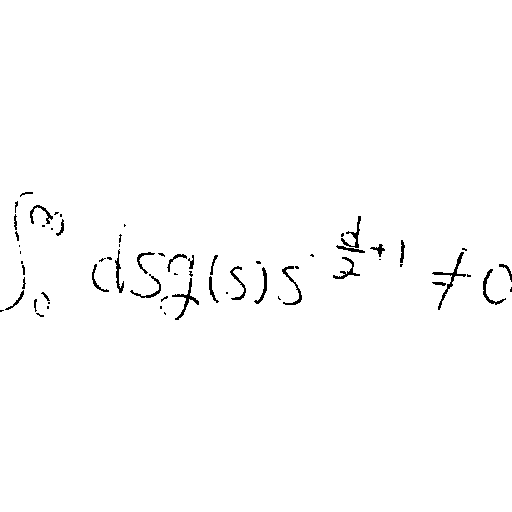 \int_0^\infty ds g(s) s^{\frac{d}{2}+1} \neq 0